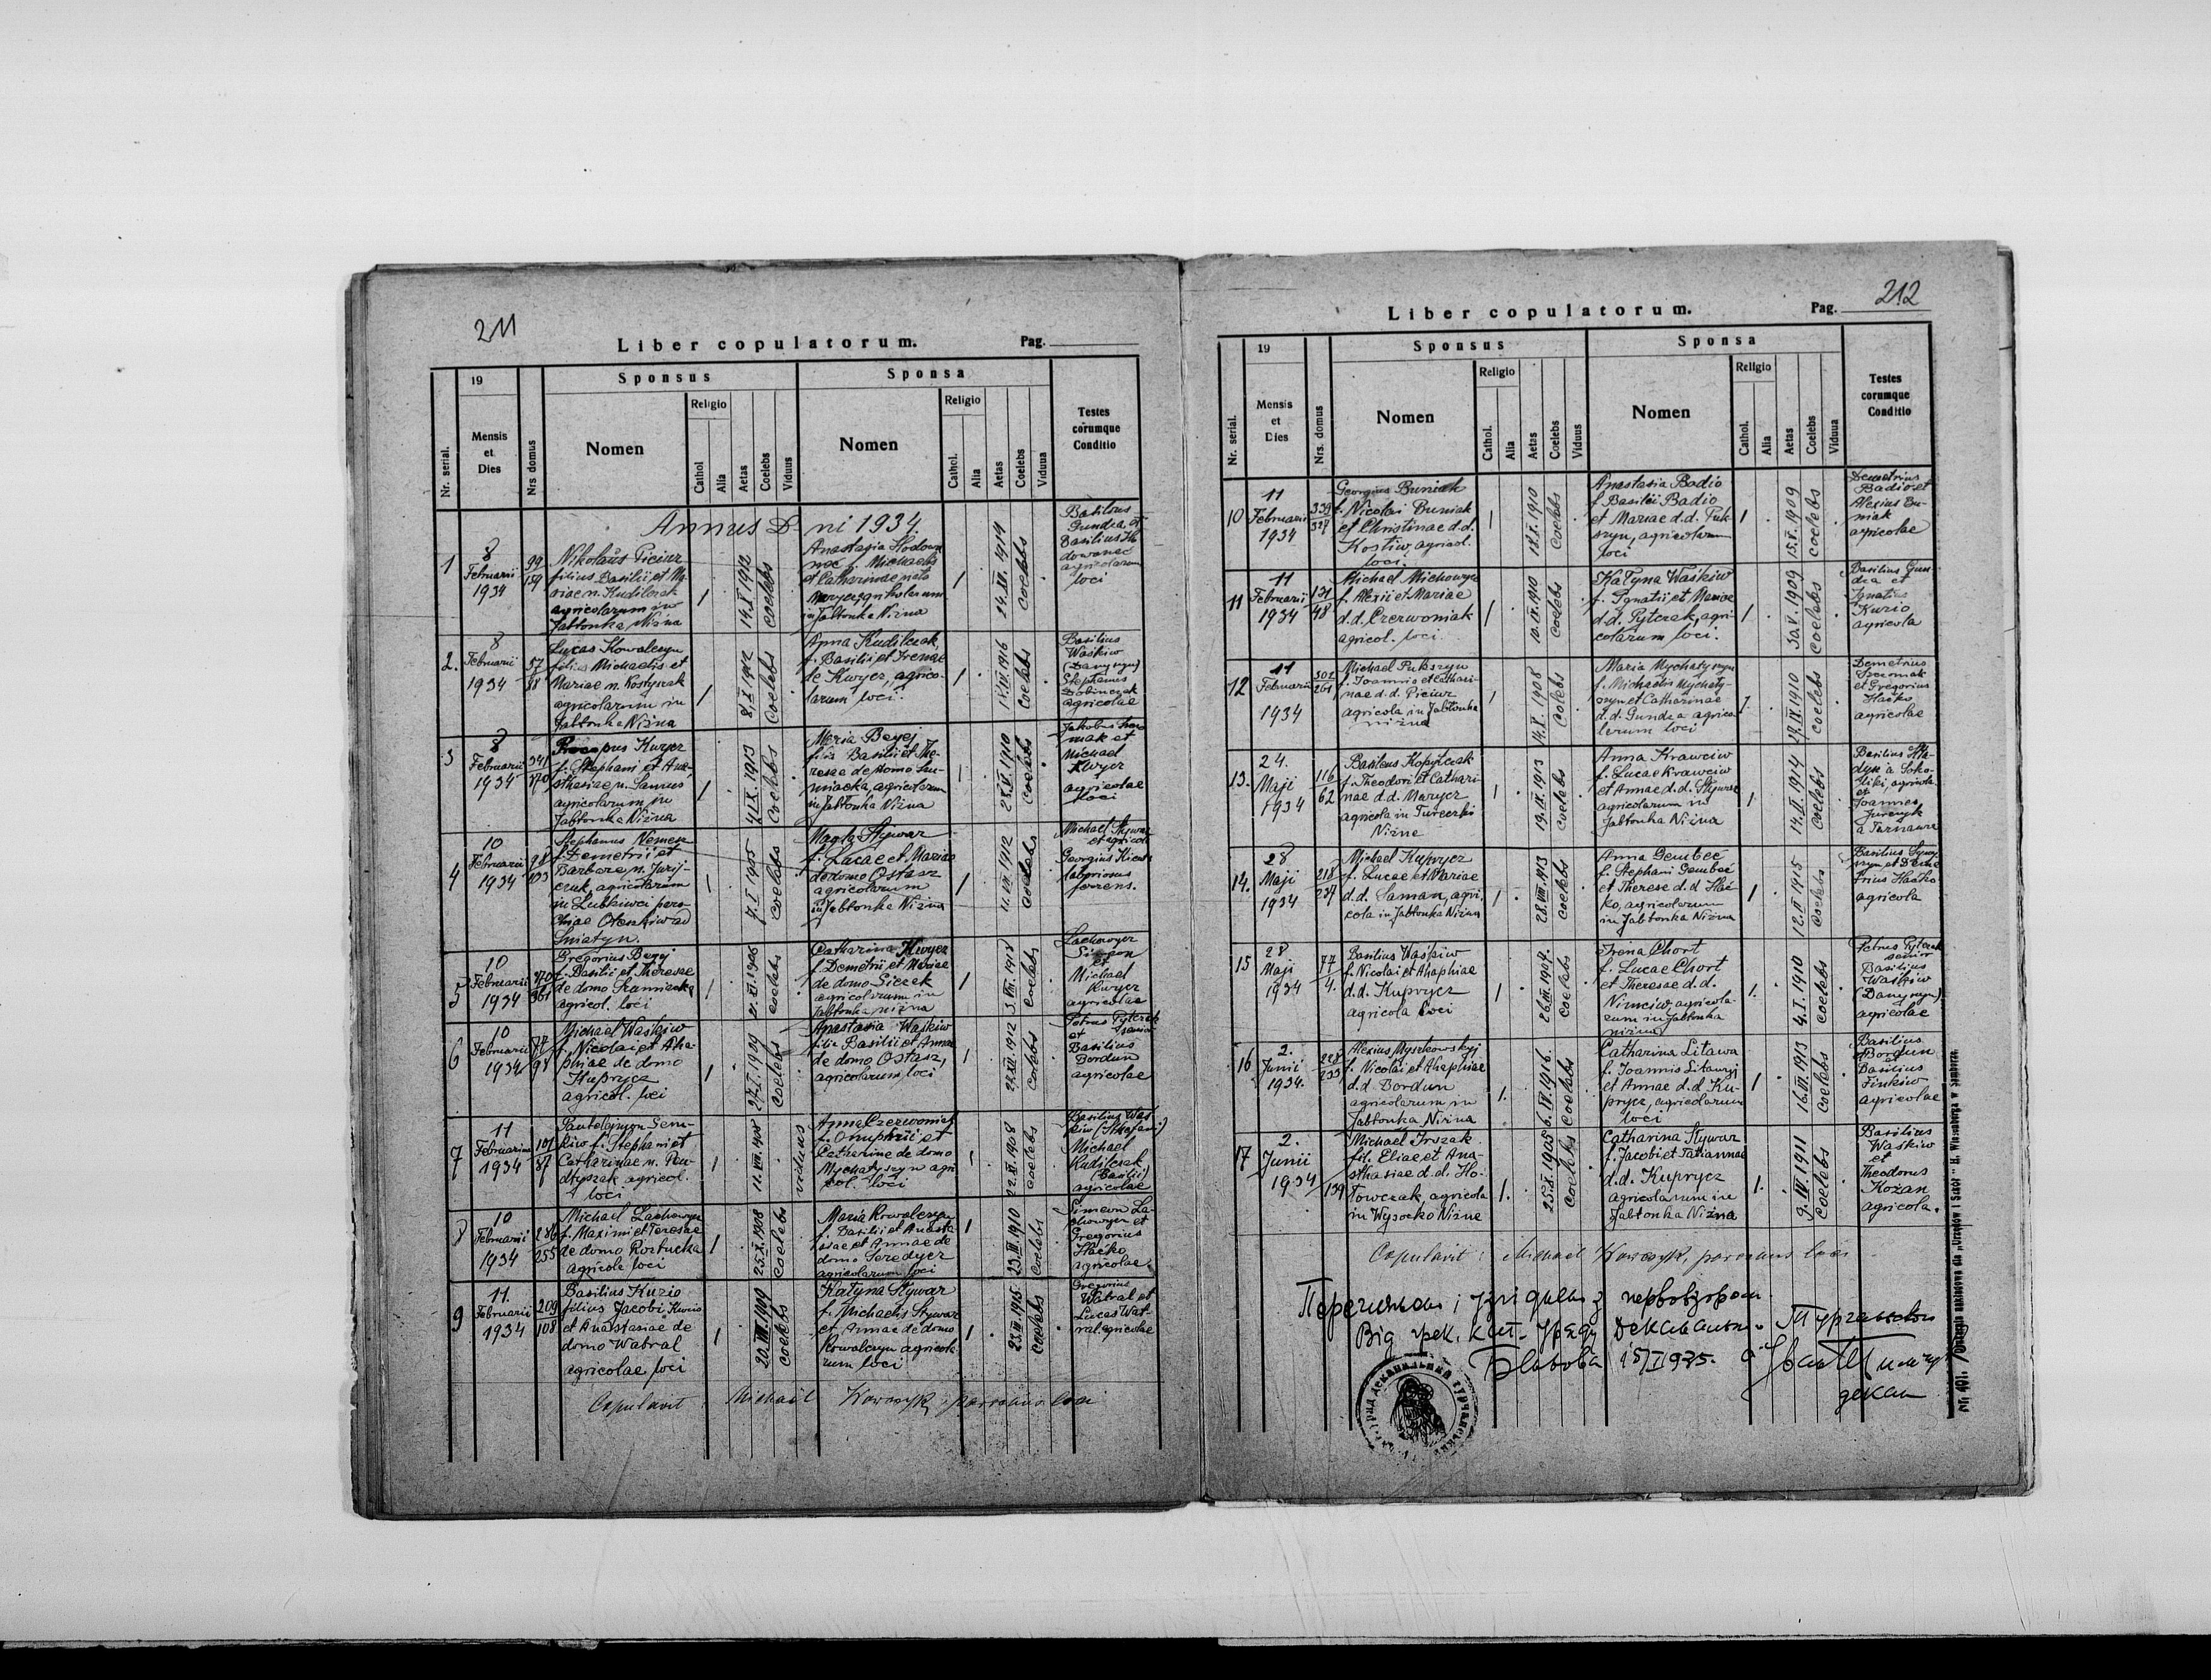 211
Liber copulatorum.
Pag.
Nr. serial.
19
Mensis
et
Dies
Nrs domus
Sponsus
Nomen
Religio
Cathol
Alia
Aetas
Coelebs
Viduus
Sponsa
Nomen
Religio
Cathol.
Alia
Aetas
Coelebs
Vidua
Testes
eorumque
Conditio
Annus D-ni 1934.
1
8
Februarii
1934
99
159
Nikolaus Piciur
filius Basilii et Ma-
riae n. Kudilczak
agricolarum in
Jabłonka Niżna
14.X 1912
Coelebs
Anastasia
f. Michaelis
et Catharinae nata
in Jabłonka Niżna
14.XII. 1914
Coelebs
Basilius
Gundza et
Basilius
agricolarum
loci
2.
8
Februarii
1934
57
88
Lucas Kowalczyn
filius Michaelis et
Mariae n. Kostyszak
agricolarum in
Jabłonka Niżna
8.X 1912
Coelebs
Anna Kudilczak
f. Basilii et Irenae
de Kwycz, agrico-
larum loci
1916
Coelebs
Basilius
Waśkiw
(Danyszyn)
Stephanus
agricolae
3
8
Februarii
1934
341
370
Procopus Kwycz
f. Stephani et Ana-
sthasiae n. Saunes
agricolarum in
Jabłonka Niżna
4.IX. 1913
Coelebs
Maria Begej
filia Basilii et The-
resae de domo
agricolarum
in Jabłonka Niżna
1910
Coelebs
Jakobus
et
Michael
Kwycz
agricolae
loci
4
10
Februarii
1934
98
Stephanus Nemesz
f. Demetrii et
Barbarae n. Jurij-
czuk, agricolarum
in Lubkiwci paro-
chiae
Sniatyn.
7.I 1905
Coelebs
Magda Stywar
f. Lucae et Mariae
de domo Ostasz
agricolarum
in Jabłonka Niżna
11.VII 1912
Coelebs
Michael Stywar
et agricola
Georgius
5
10
Februarii
1934
370
361
Gregorius Begej
f. Basilii et Theresae
de domo
agricol. loci
1906
Coelebs
Catharina Kwycz
f. Demetrii et Mariae
de domo Siczek
agricolarum in
Jabłonka niżna
Coelebs
Lachowycz
Simeon
et
Michael
Kwycz
agricolae
6
10
Februarii
1934
77
98
Michael Waśkiw
f. Nicolai et Aha-
phiae de domo
Kuprycz
agricol. loci
27.I. 1909
Coelebs
Anastasia Waśkiw
filia Basilii et Annae
de domo Ostasz,
agricolarum loci
27.XII. 1912
Coelebs
Petrus Pytczak
et senior
Basilius
Bordun
agricolae
7
11
Februarii
1934
101
87
Pantelejmon Sem-
kiw f. Stephani et
Catharinae n. Paw-
dłyszak agricol.
loci
11.VIII. 1908
viduus
Anna Czerwoniak
f. Onuphrii et
Catharinae de domo
Mychatyszyn agri-
col. loci
1908
Coelebs
Basilius Waś-
kiw
Michael
Kudilczak
(Basilii)
agricolae
8
10
Februarii
1934
286
255
Michael Lachowycz
f. Maximi et Teresiae
de domo Roztucka
agricola loci
25.X. 1908
Coelebs
Maria Kowalczyn
f. Basilii et Anasta-
siae et Annae de
domo Seredycz
agricolarum loci
23.III. 1910
Coelebs
Simeon La-
chowycz et
Gregorius
Haćko
agricolae.
9
11.
Februarii
1934
209
108
Basilius Kuzio
filius Jacobi Kuzio
et Anastasiae de
domo Watral
agricolae loci
20.VIII. 1909
Coelebs
Katyna Stywar
f. Michaelis Stywar
et Annae de domo
Kowalczyn agricola-
rum loci
23.III. 1915
Coelebs
Gregorius
Watral et
Lucas Wat-
ral agricolae
Copulavit : Michail parochus loci
212
Liber copulatorum.
Pag.
Nr. serial.
19
Mensis
et
Dies
Nrs. domus
Sponsus
Nomen
Religio
Cathol.
Alia
Aetas
Coelebs
Viduus
Sponsa
Nomen
Religio
Cathol.
Alia
Aetas
Coelebs
Viduua
Testes
eorumque
Conditio
10
11
Februarii
1934
339
327
Georgius Buniak
f. Nicolai Buniak
et Christinae d.d.
Kostiw, agricol.
loci.
1910
Coelebs
Anastasia Badio
f. Basilii Badio
et Mariae d.d. Puk-
szyn, agricolarum
loci
15.V. 1909
Coelebs
Demetrius
Badio et
Alexius Bu-
niak
agricolae
11
11
Februarii
1934
131
48
Michael Michowycz
f. Alexii et Mariae
d.d. Czerwoniak
agricol. loci.
1910
Coelebs
Katyna Waśkiw
f. Ignatii et Mariae
d.d. Pytczak, agri-
colarum loci.
30.V. 1909
Coelebs
Basilius Gun-
dza et
Ignatius
Kuzio
agricola
12
11
Februarii
1934
302
261
Michael Pukszyn
f. Joannis et Cathari-
nae d.d. Piciur
agricola in Jabłonka
niżna
14.X. 1908
Coelebs
Maria Mychatyszyn
f. Michaelis Mychaty-
szyn et Catharinae
d.d. Gundza agrico-
larum loci
29.IX 1910
Coelebs
Demetrius
et Gregorius
Haćko
agricolae
13.
24.
Maji
1934
116
62
Basilius Kopytczak
f. Theodori et Cathari-
nae d.d. Marycz
agricola in Tureczki
Niżne
19.IX. 1913
Coelebs
Anna Krawciw
f. Lucae Krawciw
et Annae d.d. Stywar
agricolarum in
Jabłonka Niżna
14.II. 1914
Coelebs
Basilius Hła-
dyk a Soko-
liki, agricola
et
Joannes
Jurczyk
a Tarnawa
14.
28
Maji
1934
218
237
Michael Kuprycz
f. Lucae et Mariae
d.d. Saman, agri-
cola in Jabłonka Niżna
28.VIII. 1913
Coelebs
Anna Gembeć
f. Stephani Gembeć
et Therese d.d Hać-
ko, agricolarum
in Jabłonka Niżna
12.II 1915
Coelebs
Basilius
et Deme-
trius Haćko
agricola
15
28
Maji
1934
77
4.
Basilius Waśkiw
f. Nicolai et Ahaphiae
d.d. Kuprycz
agricola loci
26.III. 1904.
Coelebs
Irena Chort
f. Lucae Chort
et Theresae d.d.
Nimciw, agricola-
rum in Jabłonka
niżna
4.I. 1910
Coelebs
Petrus Pytczak
senior
Basilius
Waśkiw
(Danyszyn)
agricolae
16
2.
Junii
1934.
228
233
Alexius Myszkowskyj
f. Nicolai et Ahaphiae
d.d. Bordun
agricolarum in
Jabłonka Niżna
6.IV 1916.
Coelebs
Catharina Litawa
f. Joannis Litawyj
et Annae d.d. Ku-
prycz, agricolarum
loci
16.III. 1913
Coelebs
Basilius
Bordun
et
Basilius
Finkiw
agricolae
17
2.
Junii
1934
139
Michael Irszak
fil. Eliae et Ana-
sthasiae d.d. Ho-
łowczak, agricola
in Wysocko Niżne
25.X. 1905
Coelebs
Catharina Stywar
f. Jacobi et Tatiannae
d.d. Kuprycz
agricolarum in
Jabłonka Niżna
9.IV 1911
Coelebs
Basilius
Waśkiw
et
Theodorus
Kożan
agricola.
Copulavit : Michael parochus loci
Від грек. кат.
15/I 1935.
декан